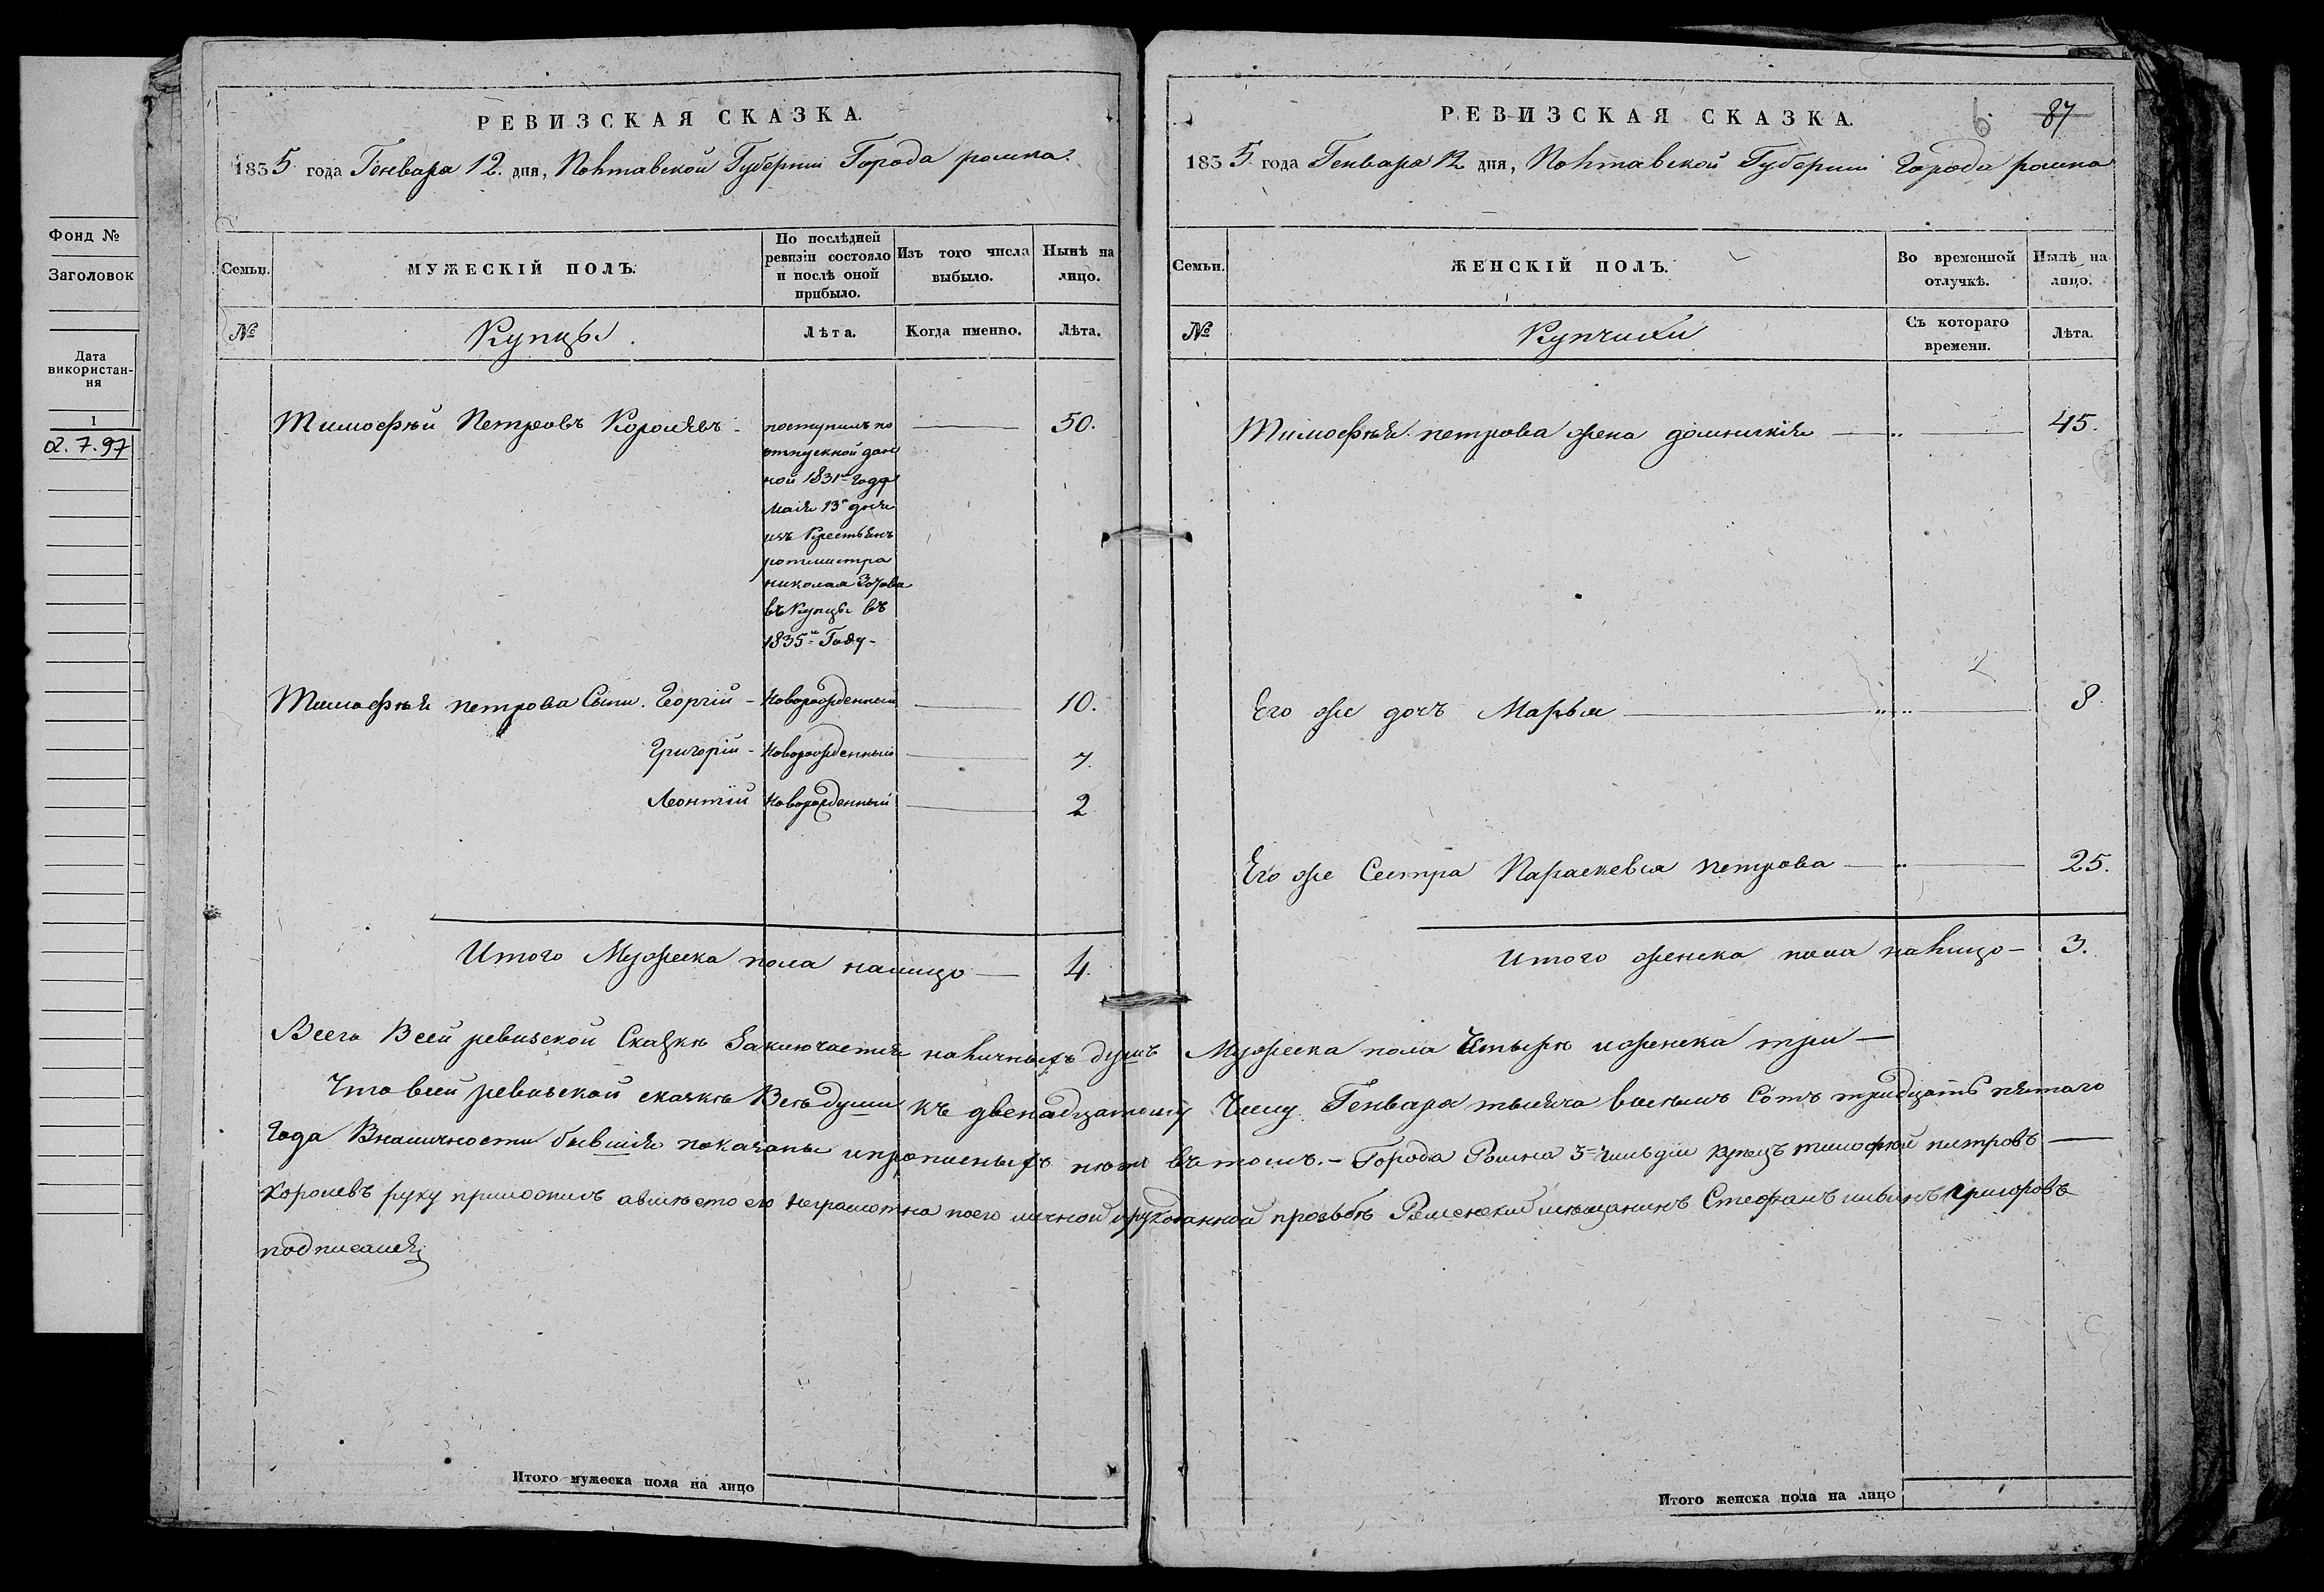 Фонд №
Заголовок
Дата
використан-
ня
1
02.7.97
РЕВИЗСКАЯ СКАЗКА.
1835 года Генваря 12. дня, Полтавской Губернии Города ромна.
Семьи.
МУЖЕСКІЙ ПОЛЪ.
По послѣдней
ревизіи состояло
и послѣ оной
прибыло.
Изъ того числа
выбыло.
Нынѣ на
лицо.
№
Купцы.
Лѣта.
Когда именно.
Лѣта.
Тимофѣй Петровъ Королѣвъ -
поступилъ по
отпускной дан
ной 1831го Года
Маія 13го дня
изъ Крестьянъ
ротмистра
николая Зотова
въ Купцы въ
1835м Году -
50.
Тимофѣя петрова Сыны. Георгій - Новорожденный 10.
Григорій - Новорожденный 7.
Леонтій Новорожденный 2
Итого Мужеска пола налицо — 4.
РЕВИЗСКАЯ СКАЗКА.
6. 87
1835 года Генваря 12 дня, Полтавской Губернии Города ромна
Семьи.
ЖЕНСКІЙ ПОЛЪ.
Во временной
отлучкѣ.
Нынѣ на
лицо.
№
Купчихи
Съ котораго
времени.
Лѣта.
Тимофѣя петрова жена домникія — „ — 45.
Его же дочь Марья — „„ — 8.
Его же Сестра Параскевія петрова — „ — 25.
Итого женска пола налицо — 3.
Всего Всей ревизской Сказкѣ Заключается наличныхъ душъ Мужеска пола Четыре иженска три —
Что всей ревизской сказкѣ Всѣ души къ двенадцатому Числу Генваря тысяча восемь Сотъ тридцать пятаго
Года Вналичности бывшія показаны ипрописныхъ нѣтъ въ томъ. - Города Ромна 3=гильдіи Купецъ тимофѣй петровъ —
Королевъ руку приложилъ авмѣсто его неграмотна поего личной ирукоданной прозьбѣ Роменский мѣщанинъ Стефанъ Григоровъ
подписался
Итого мужеска пола на лицо
Итого женска пола на лицо